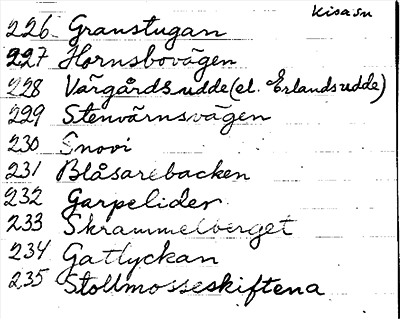 Kisa sn
226 Granstugan
227 Hornsbovägen
228 Vårgårdsudde (el. Erlandsudde)
229 Stenvärnsvägen
230 Snovi
231 Blåsarebacken
232 Garpelider
233 Skrammelberget
234 Gatlyckan
235 Stollmosseskiftena